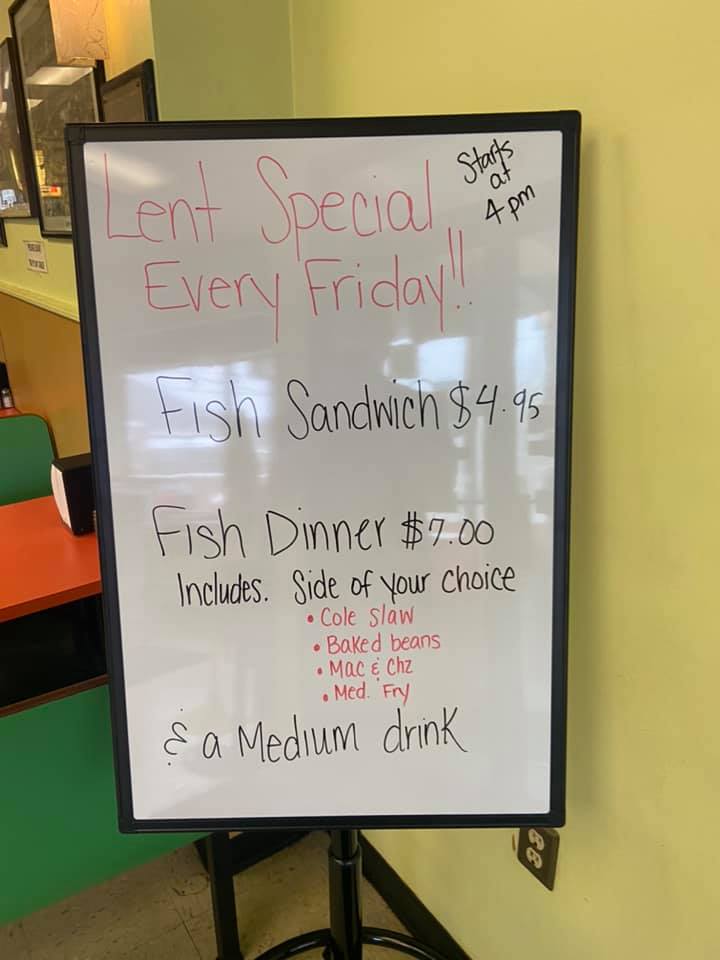 Lent Special
Starts
at
4 pm
Every Friday!!
Fish Sandwich $4.95
Fish Dinner $7.00
Includes. Side of your choice
• Cole slaw
• Baked beans
• Mac & Chz
• Med. Fry
& a Medium drink